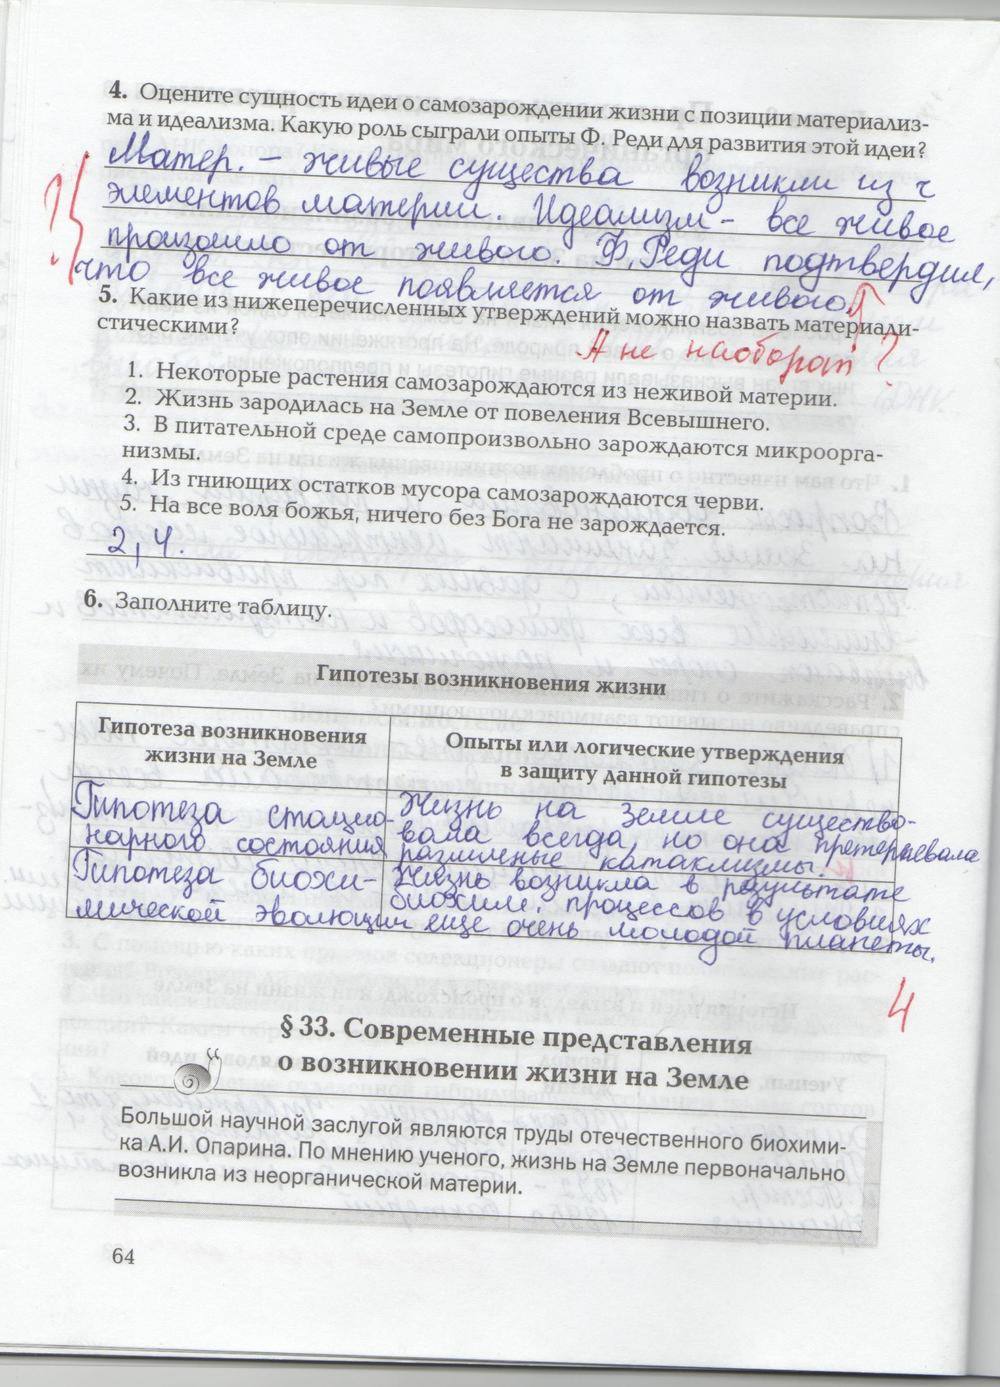 4. Оцените сущность идеи о самозарождении жизни с позиции материализ-
ма и идеализма. Какую роль сыграли опыты Ф. Реди для развития этой идеи?
Матер. – живые существа возникли из ч
элементов материи. Идеализм – все живое
произошло от живого. Ф. Реди подтвердил,
что все живое появляется от живого.
5. Какие из нижеперечисленных утверждений можно назвать материали-
стическими?
А не наоборот?
1. Некоторые растения самозарождаются из неживой материи.
2. Жизнь зародилась на Земле от повеления Всевышнего.
3. В питательной среде самопроизвольно зарождаются микроорга-
низмы.
4. Из гниющих остатков мусора самозарождаются черви.
5. На все воля божья, ничего без Бога не зарождается.
2, 4.
6. Заполните таблицу.
Гипотезы возникновения жизни
Гипотеза возникновения
жизни на Земле
Опыты или логические утверждения
в защиту данной гипотезы
Гипотеза стацио-
нарного состояния
Жизнь на Земле существо-
вала всегда, но она претерпевала
различные катаклизмы.
Гипотеза биохи-
мической эволюции
Жизнь возникла в результате
биохим. процессов в условиях
еще очень молодой планеты.
4
§ 33. Современные представления
о возникновении жизни на Земле
Большой научной заслугой являются труды отечественного биохими-
ка А.И. Опарина. По мнению ученого, жизнь на Земле первоначально
возникла из неорганической материи.
64